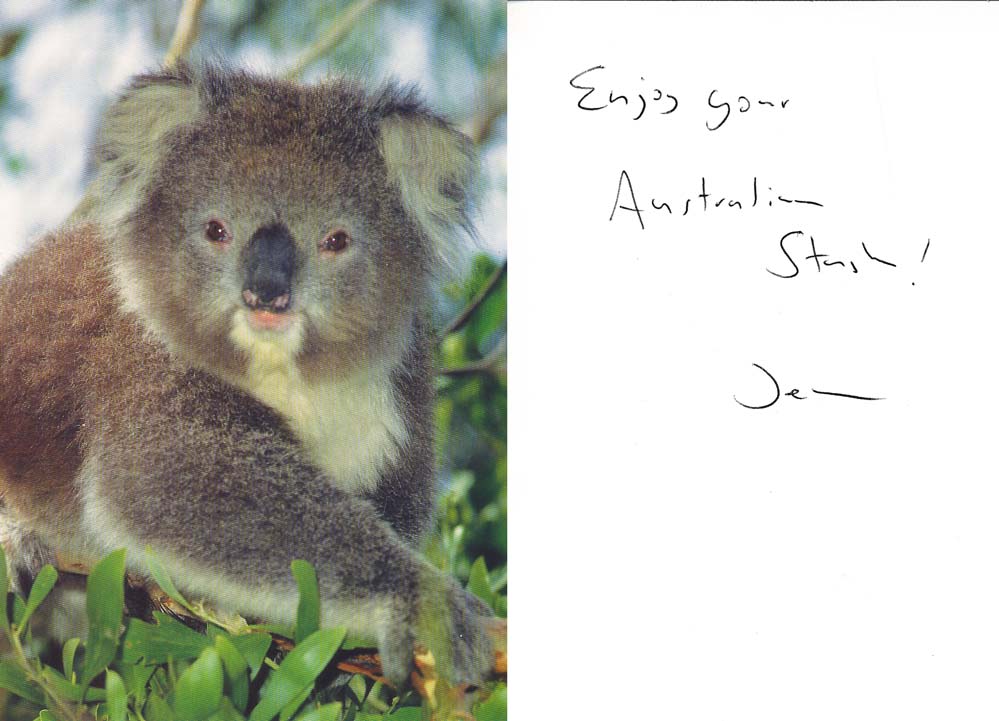 Enjoy your
Australian
Stash!
Jen